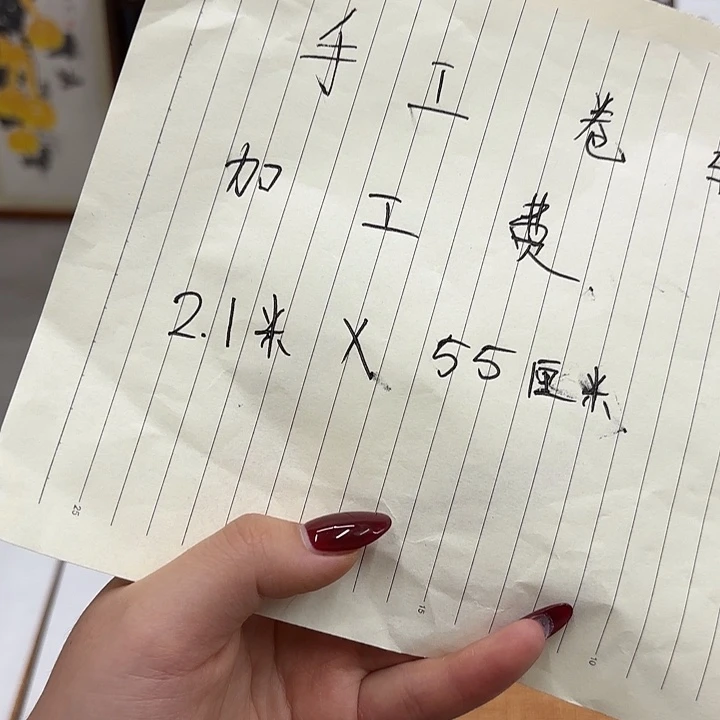 手工 卷
加工费.
2.1米 X 55厘米.
25
15
10